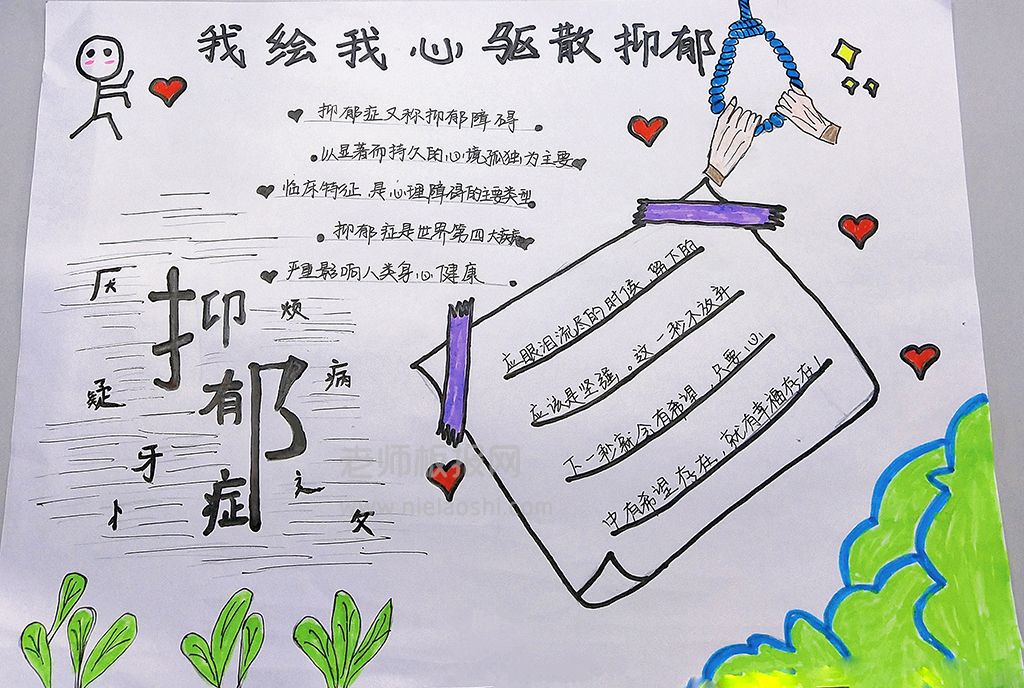 我绘我心驱散抑郁
抑郁症又称抑郁障碍
以显著而持久的心境孤独为主要
临床特征,是心理障碍的主要类型
抑郁症是世界第四大疾病
严重影响人类身心健康
应眼泪流尽的时候,留下的
应该是坚强。这一秒不放弃
下一秒就会有希望,只要心
中有希望存在,就有幸福存在!
抑
郁
症
烦
疑
病
牙
老师板报网
www.nielaoshi.com